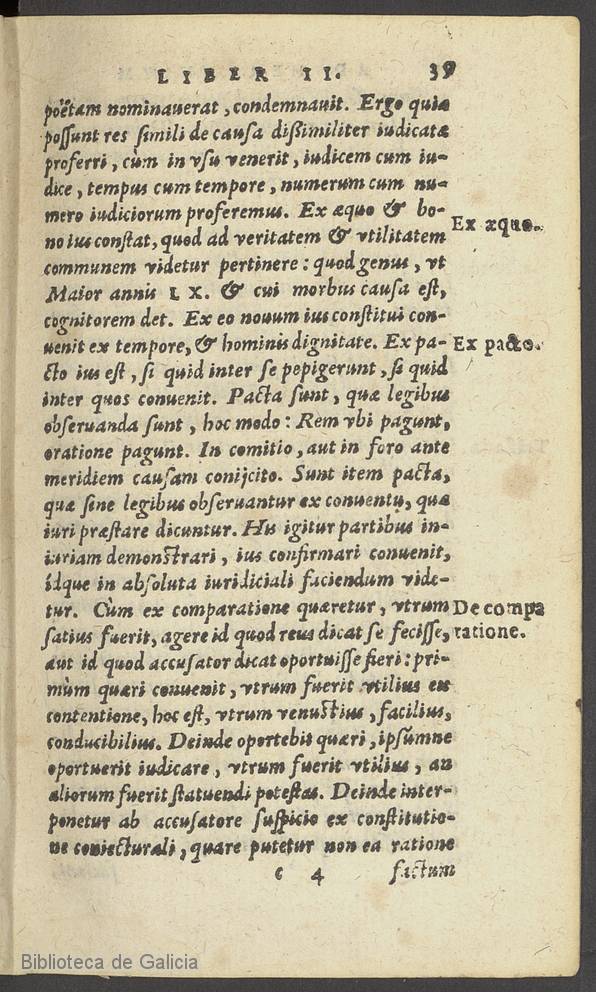 LIBER II. 39
poëtam nominauerat, condemnauit. Ergo quia
possunt res simili de causa dissimiliter iudicatæ
proferri, cùm in vsu venerit, iudicem cum iu-
dice, tempus cum tempore, numerum cum nu-
mero iudiciorum proferemus. Ex æquo & bo-
Ex æquo.
no ius constat, quod ad veritatem & vtilitatem
communem videtur pertinere: quod genus, vt
Maior annis LX. & cui morbus causa est,
cognitorem det. Ex eo nouum ius constitui con-
uenit ex tempore, & hominis dignitate. Ex pa-
Ex pacto.
cto ius est, si quid inter se pepigerunt, si quid
inter quos conuenit. Pacta sunt, quæ legibus
obseruanda sunt, hoc modo: Rem vbi pagunt,
oratione pagunt. In comitio, aut in foro ante
meridiem causam conijcito. Sunt item pacta,
quæ sine legibus obseruantur ex conuentu, quæ
iuri præstare dicuntur. His igitur partibus in-
iuriam demonstrari, ius confirmari conuenit,
idque in absoluta iuridiciali faciendum vide-
tur. Cùm ex comparatione quæretur, vtrum
De compa
satius fuerit, agere id quod reus dicat se fecisse,
ratione.
aut id quod accusator dicat oportuisse fieri: pri-
mùm quæri conuenit, vtrum fuerit vtilius ex
contentione, hoc est, vtrum venustius, facilius,
conducibilius. Deinde oportebit quæri, ipsúmne
oportuerit iudicare, vtrum fuerit vtilius, an
aliorum fuerit statuendi potestas. Deinde inter-
ponetur ab accusatore suspicio ex constitutio-
ne coniecturali, quare putetur non ea ratione
c 4 factum
Biblioteca de Galicia